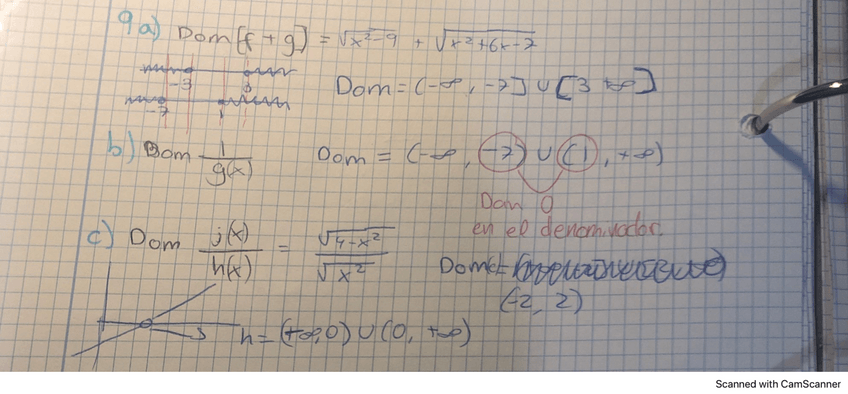 9 a) Dom[f + g] = √x²-9 + √x²+6x-7
-3 3
-7 1
Dom = (-∞, -7] ∪ [3 +∞]
b) Dom 1/g(x) Dom = (-∞, -7) ∪ (1, +∞)
Dan 0
en el denominador.
c) Dom j(x)/h(x) = √4-x²/√x² Dom
(-2, 2)
h = (+∞,0) ∪ (0, +∞)
Scanned with CamScanner